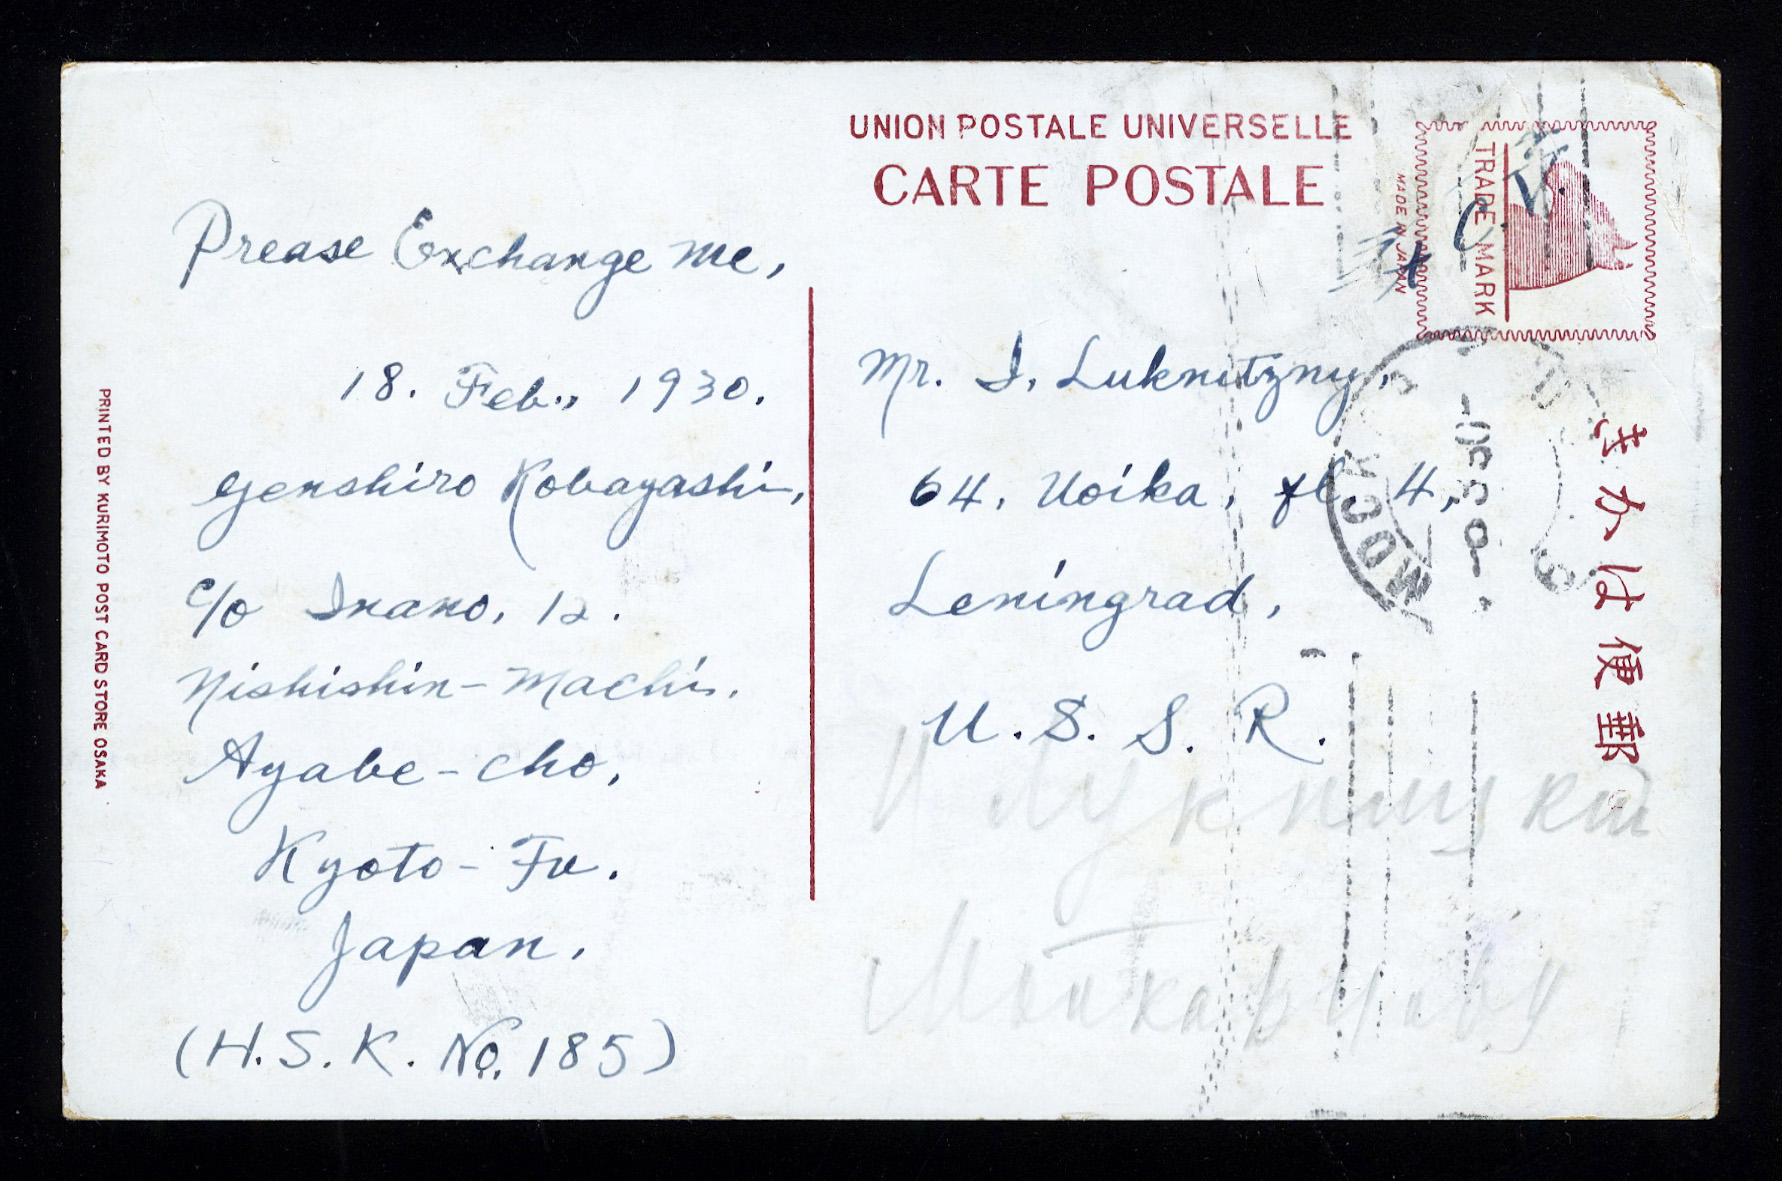 UNION POSTALE UNIVERSELLE
CARTE POSTALE
TRADE MARK
MADE IN JAPAN
きかは便郵
Prease Exchange me,
18. Feb., 1930.
Genshiro Kobayashi,
c/o Inano, 12.
Nishishin-Machi.
Ayabe-cho,
Kyoto-Fu.
Japan.
(H.S.K. No. 185)
PRINTED BY KURIMOTO POST CARD STORE OSAKA
Mr. I. Luknitzny,
64, Uoika, 4,
Leningrad,
U.S.S.R.
МОСК